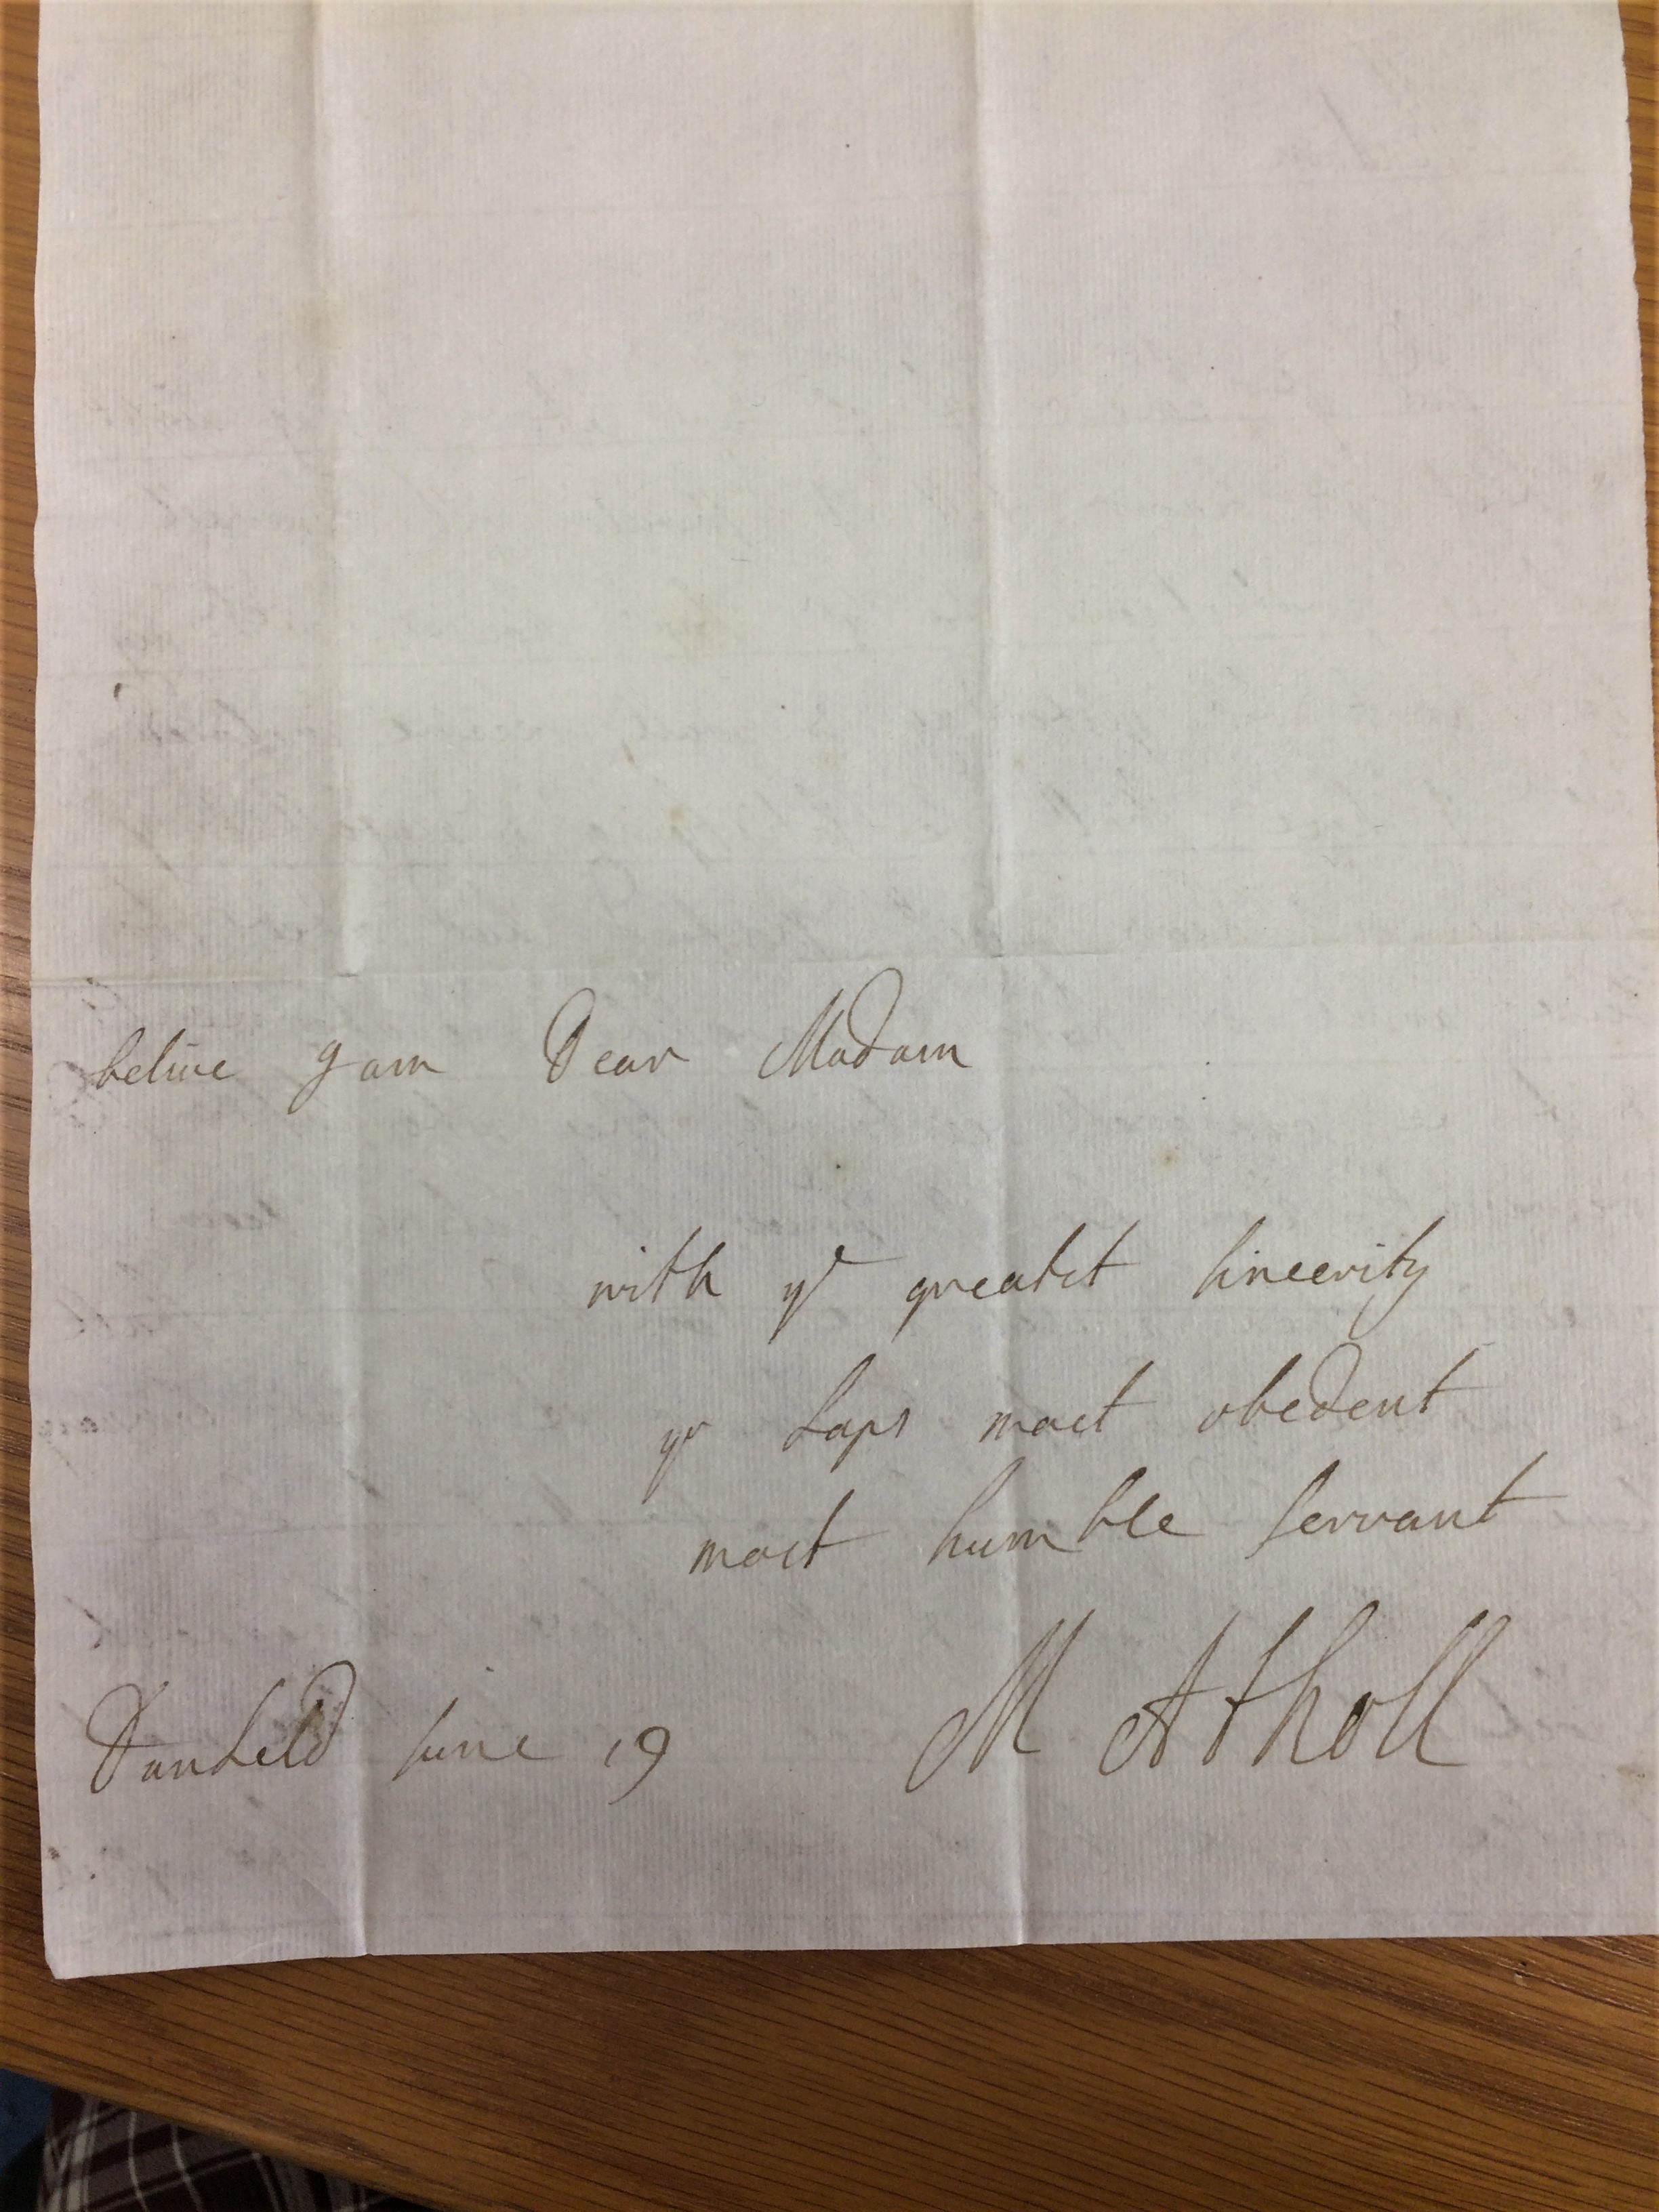 belive I am Dear Madam
with ye greatest sincerity
yr Laps most obedent
most humble servant
Dunkeld June 19 M Atholl